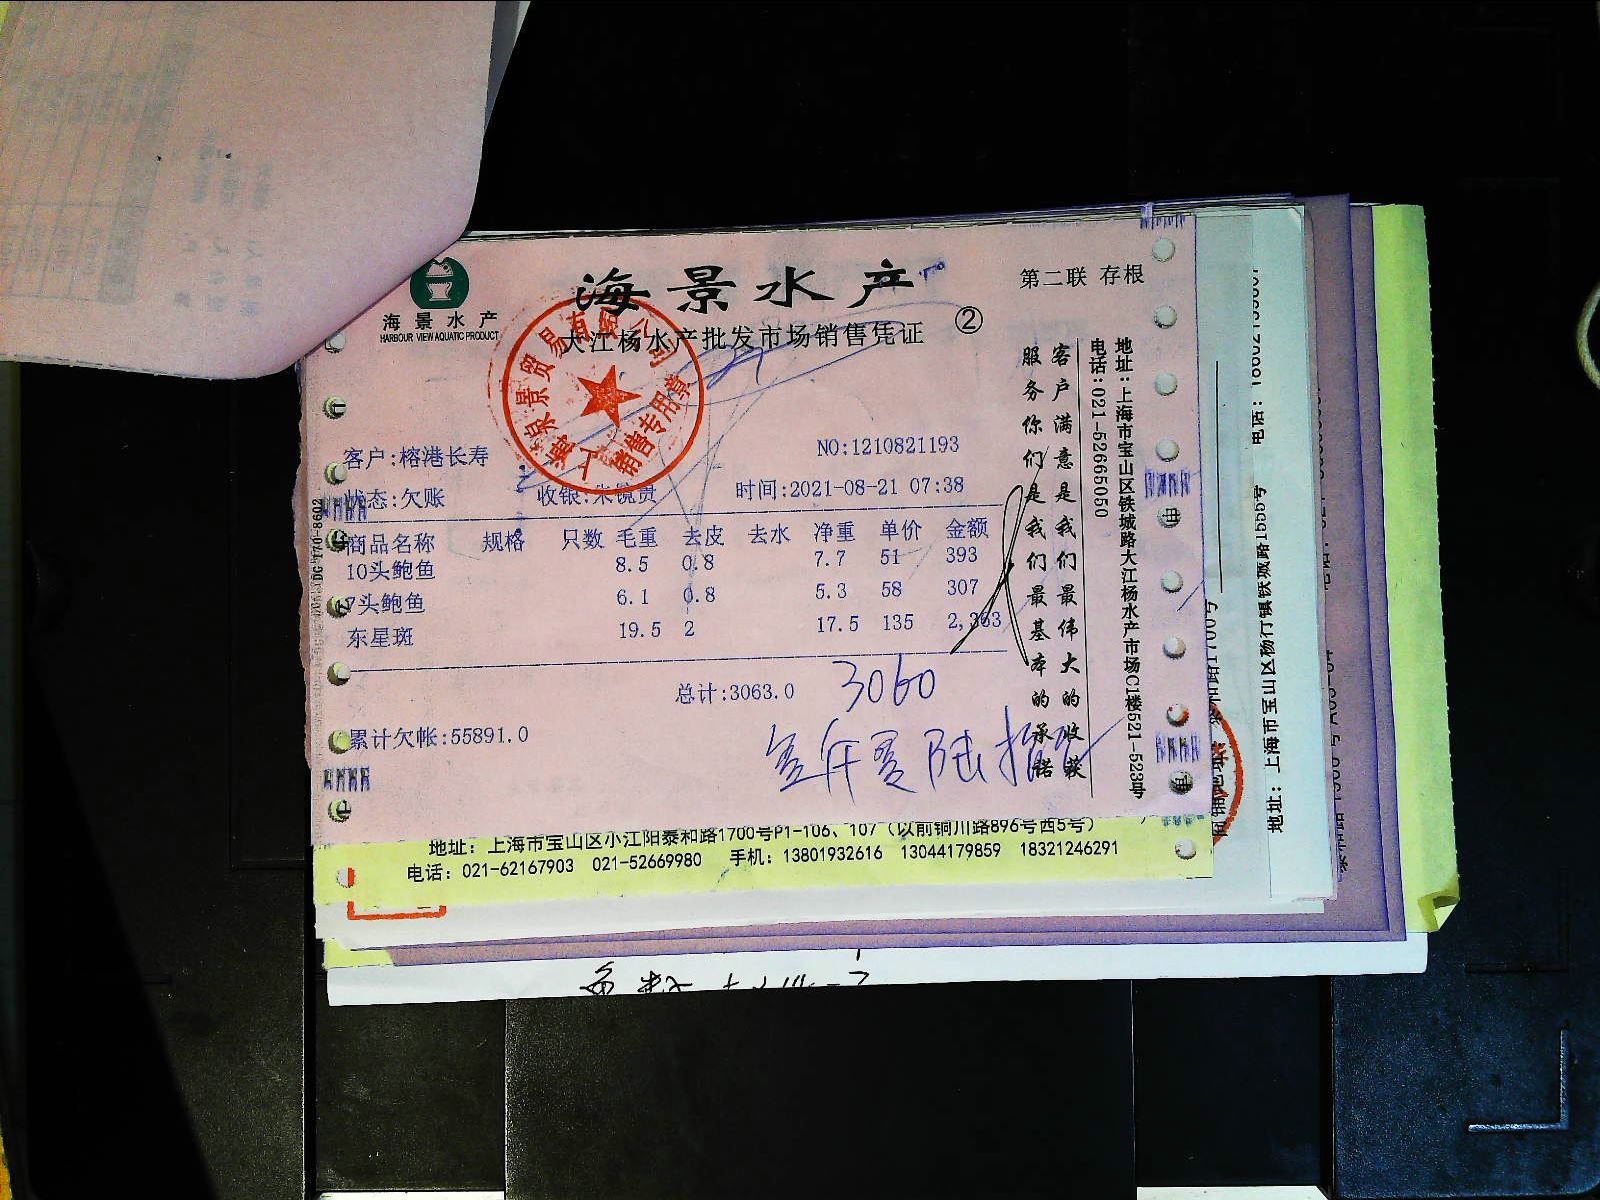 海景水产
HARBOUR VIEW AQUATIC PRODUCT
海景水产
第二联 存根
大江杨水产批发市场销售凭证
②
泉景贸易有限公司
销售专用章
客户:榕港长寿
NO:1210821193
状态:欠账
收银:朱镜贵
时间:2021-08-21 07:38
商品名称 规格 只数 毛重 去皮 去水 净重 单价 金额
10头鲍鱼 8.5 0.8 7.7 51 393
7头鲍鱼 6.1 0.8 5.3 58 307
东星斑 19.5 2 17.5 135 2,363
总计:3063.0
3060
累计欠帐:55891.0
客户满意是我们最伟大的收获
服务你们是我们最基本的承诺
地址:上海市宝山区铁城路大江杨水产市场C1楼521-523号
电话:021-52665050
DG-170-8602
地址: 上海市宝山区小江阳泰和路1700号P1-106、107 (以前铜川路896号西5号)
电话: 021-62167903 021-52669980 手机: 13801932616 13044179859 18321246291
地址: 上海市宝山区杨行镇铁城路1555号
电话: